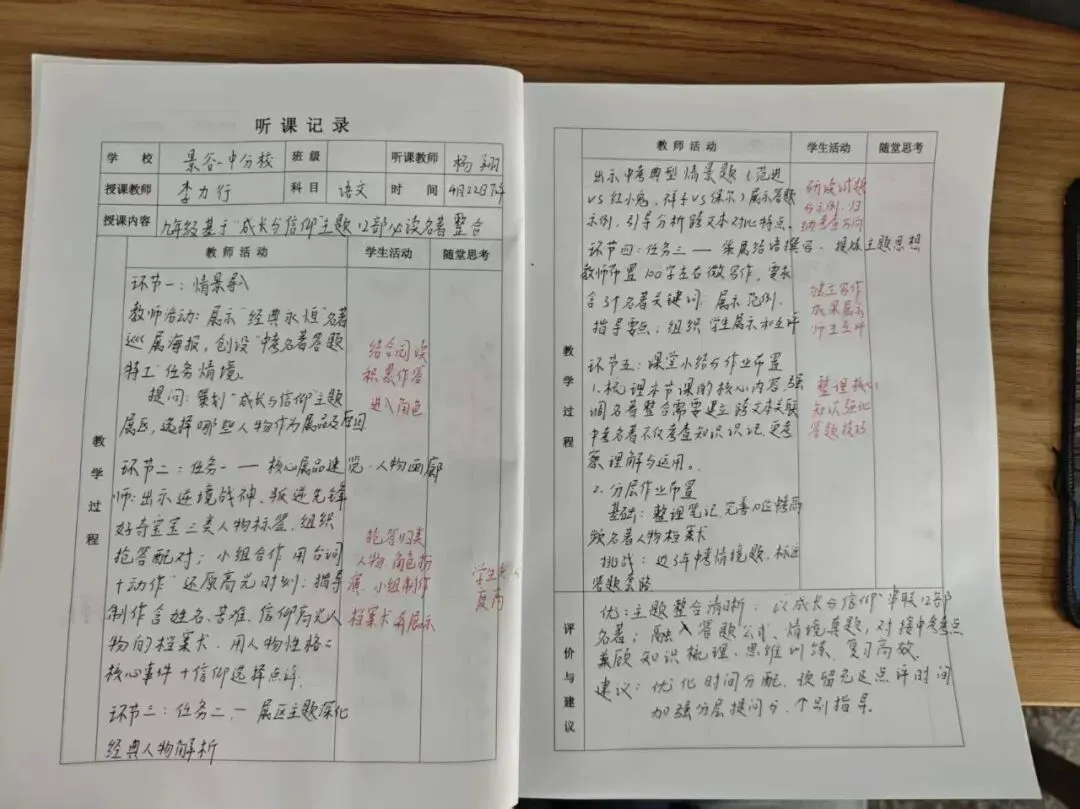 听课记录
学 校 景谷一中分校 班 级 听课教师 杨翔
授课教师 李力行 科 目 语文 时 间 4月22日
授课内容 九年级基于"成长与信仰"主题12部必读名著整合
教 学 过 程
教 师 活 动 学生活动 随堂思考
环节一:情景导入
教师活动:展示"经典永恒"名著
巡展海报,创设"中考名著答题
特工"任务情境。
提问:策划"成长与信仰"主题
展区,选择哪些人物作为展品及原因
结合阅读
积累作答
进入角色
环节二:任务一——核心展品速览·人物画廊
师:出示逆境战神、叛逆先锋
好奇宝宝三类人物标签,组织
抢答配对;小组合作 用台词
+动作"还原高光时刻;指导
制作含姓名、苦难、信仰高光人
物的档案卡.用人物性格=
核心事件+信仰选择点评.
抢答归类
人物.角色扮
演.小组制作
档案卡并展示
学生
度高
环节三:任务二.—展区主题深化
经典人物解析
教 师 活 动 学生活动 随堂思考
教 学 过 程
出示中考典型情景题(范进
VS红小鬼,祥子VS保尔)展示答题
示例,引导分析跨文本对比特点。
研读试题
与示例,归
纳考查方向
环节四:任务三——策展结语撰写·提炼主题思想
教师布置100字左右微写作,要求
含3个名著关键词,展示范例.
指导要点;组织学生展示和互评
独立写作
成果展示
师生互评
环节五:课堂小结与作业布置
1.梳理本节课的核心内容,强
调名著整合需要建立跨文本关联
中考名著不仅考查知识识记,更考
察理解与运用。
整理核心
知识强化
答题技巧
2.分层作业布置
基础:整理笔记,完善12位高
频名著人物档案卡
挑战:近5年中考情境题,标注
答题套路
评 价 与 建 议
优:主题整合清晰:以"成长与信仰"串联12部
名著;融入答题公式、情境真题,对接中考考点
兼顾知识梳理、思维训练,复习高效
建议:优化时间分配,预留充足点评时间
加强分层提问与个别指导。